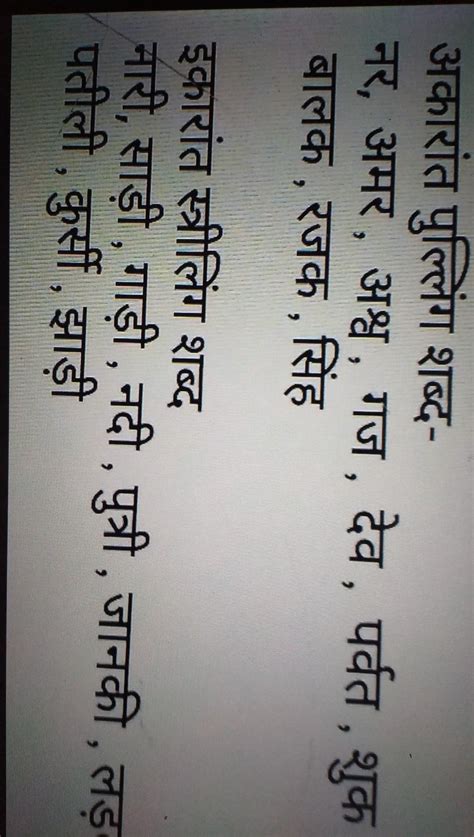 अकारांत पुल्लिंग शब्द-
नर, अमर, अश्व, गज, देव, पर्वत, शुक
बालक, रजक, सिंह
इकारांत स्त्रीलिंग शब्द
नारी, साड़ी, गाड़ी, नदी, पुत्री, जानकी, लड़
पतीली, कुर्सी, झाड़ी